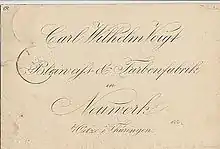 Carl Wilhelm Voigt
Bleiweiss & Farbenfabrik
in
Neuwerk
i/Thüringen.